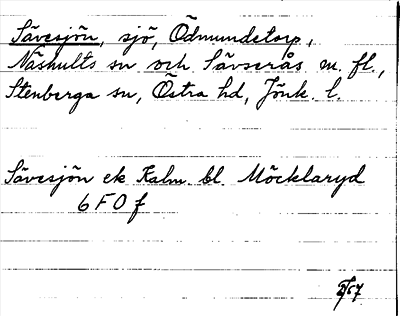 Sävesjön, sjö, Ödmundetorp,
Näshults sn och Sävserås m. fl.,
Stenberga sn, Östra hd, Jönk. l.
Sävesjön ek Kalm. bl. Möcklaryd
6 F 0 f